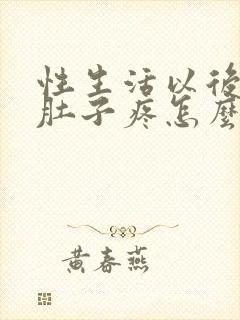 性生活以後
肚子疼怎麼
黄春燕